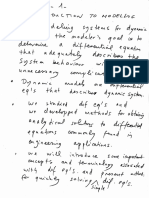 - 1 -
TO MODELING
modeling systems for dynamic
the modeler's goal is to
determine a differential equation
that adequately describes the
system behaviour without
unnecessary complications
• Dynamic models are differential
eq's that describe dynamic systems
• we studied dif eq's and
we developed methods for obtaining
analytical solutions to differential
equations commonly found in
engineering applications.
• we will introduce some important
concepts and terminology associated
with dif eq's, and present
for quickly solving dif eq's.
simple